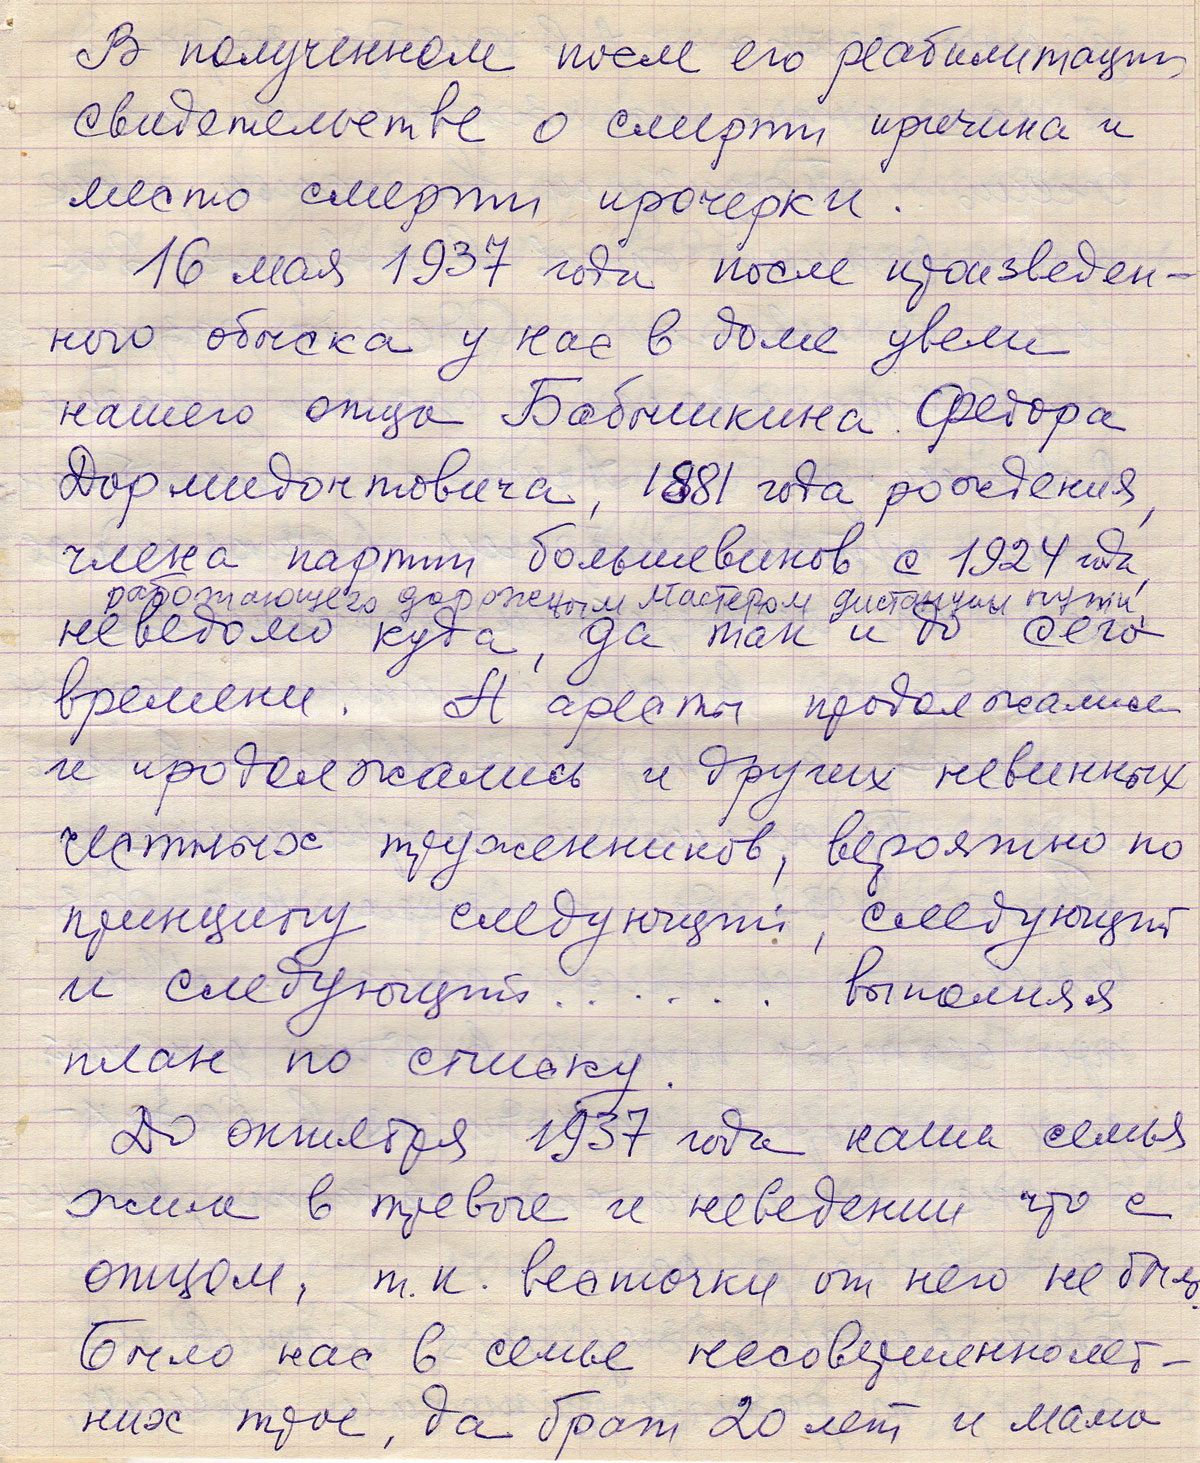 В полученном после его реабилитации
свидетельстве о смерти причина и
место смерти прочерки.
16 мая 1937 года после произведен-
ного обыска у нас в доме увели
нашего отца Бабышкина Федора
Дормидонтовича, 1881 года рождения,
члена партии большевиков с 1924 года,
работающего дорожным мастером дистанции пути,
неведомо куда, да так и до сего
времени. А аресты продолжались
и продолжались и других невинных
честных тружеников, вероятно по
принципу следующий, следующий
и следующий....... выполняя
план по списку.
До октября 1937 года наша семья
жила в тревоге и неведении что с
отцом, т.к. весточки от него не было.
Было нас в семье несовершеннолет-
них трое, да брат 20 лет и мама